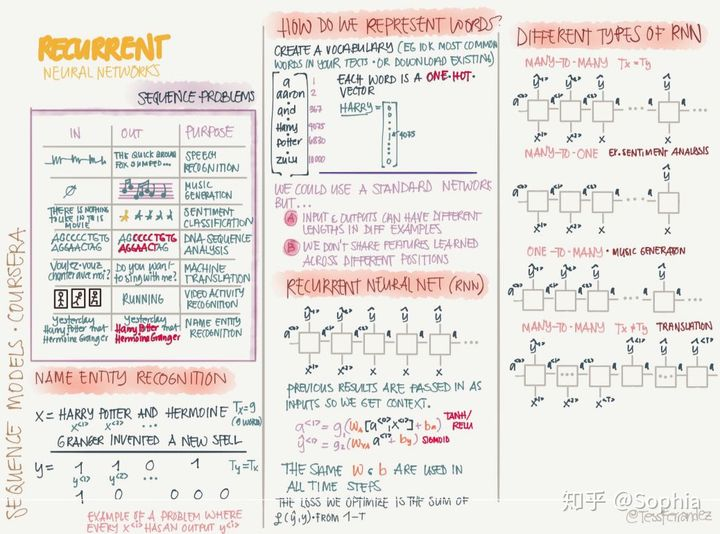 RECURRENT
NEURAL NETWORKS
SEQUENCE PROBLEMS
IN OUT PURPOSE
THE QUICK BROWN FOX JUMPED... SPEECH RECOGNITION
∅ MUSIC GENERATION
THERE IS NOTHING TO LIKE IN THIS MOVIE SENTIMENT CLASSIFICATION
AGCCCCTGTG AGGAACTAG AGCCCCTGTG AGGAACTAG DNA-SEQUENCE ANALYSIS
Voulez-vouz chanter avec moi? Do you want to sing with me? MACHINE TRANSLATION
RUNNING VIDEO ACTIVITY RECOGNITION
Yesterday Harry Potter met Hermoine Granger Yesterday Harry Potter met Hermoine Granger NAME ENTITY RECOGNITION
SEQUENCE MODELS · COURSERA
NAME ENTITY RECOGNITION
X = HARRY POTTER AND HERMOINE Tx=9
x<1> x<2> ... (9 WORDS)
GRANGER INVENTED A NEW SPELL
y = 1 1 0 1 Ty=Tx
y<1> y<2> ...
1 0 0 0 0
EXAMPLE OF A PROBLEM WHERE
EVERY x<i> HAS AN OUTPUT y<i>
HOW DO WE REPRESENT WORDS?
CREATE A VOCABULARY (EG 10K MOST COMMON
WORDS IN YOUR TEXTS · OR DOWNLOAD EXISTING)
a 1
aaron 2
and 367
Harry 4075
Potter 6830
zulu 10000
EACH WORD IS A ONE·HOT·
VECTOR
HARRY =
4075
WE COULD USE A STANDARD NETWORK
BUT...
A INPUT & OUTPUTS CAN HAVE DIFFERENT
LENGTHS IN DIFF EXAMPLES
B WE DON'T SHARE FEATURES LEARNED
ACROSS DIFFERENT POSITIONS
RECURRENT NEURAL NET (RNN)
PREVIOUS RESULTS ARE PASSED IN AS
INPUTS SO WE GET CONTEXT.
TANH/
RELU
SIGMOID
THE SAME W & b ARE USED IN
ALL TIME STEPS
THE LOSS WE OPTIMIZE IS THE SUM OF
ℒ(ŷ,y) · FROM 1-T
DIFFERENT TYPES OF RNN
MANY-TO-MANY Tx = Ty
MANY-TO-ONE EX. SENTIMENT ANALYSIS
ONE-TO-MANY · MUSIC GENERATION
MANY-TO-MANY Tx ≠ Ty TRANSLATION
知乎 @Sophia
@TessFerrandez